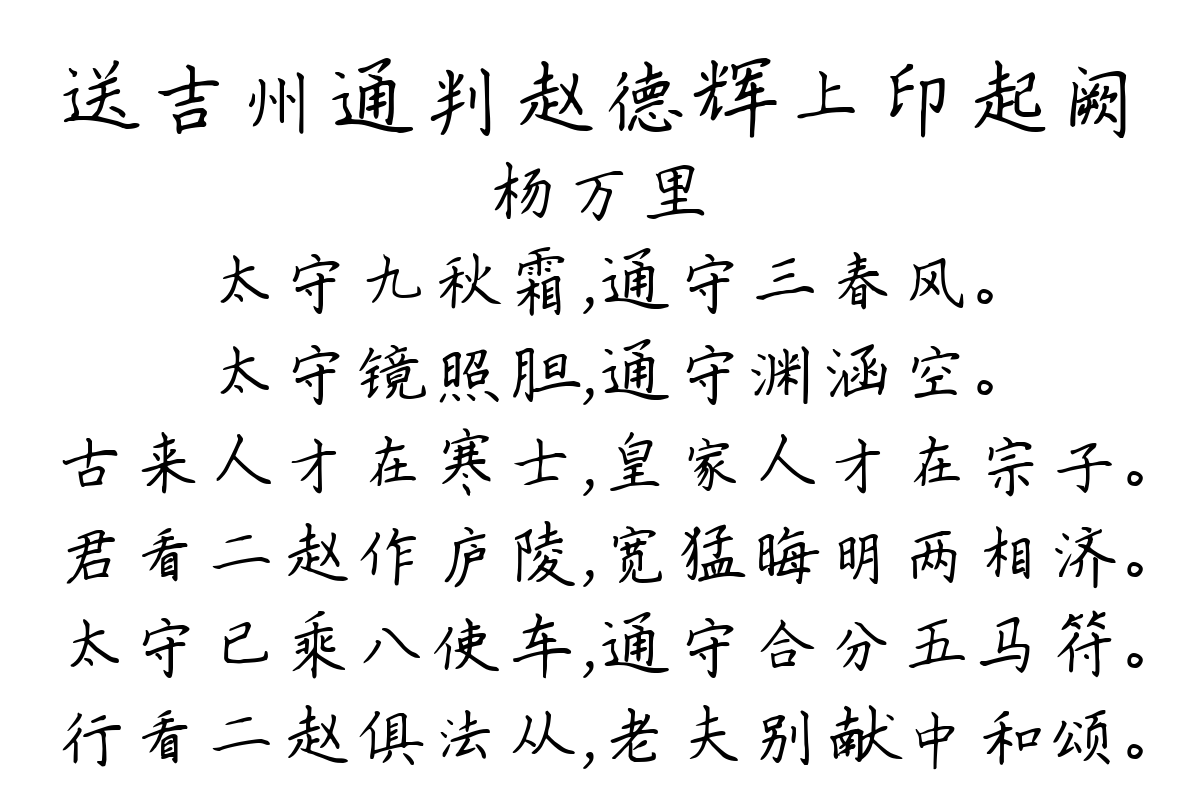 送吉州通判赵德辉上印起阙
杨万里
太守九秋霜,通守三春风。
太守镜照胆,通守渊涵空。
古来人才在寒士,皇家人才在宗子。
君看二赵作庐陵,宽猛晦明两相济。
太守已乘八使车,通守合分五马符。
行看二赵俱法从,老夫别献中和颂。